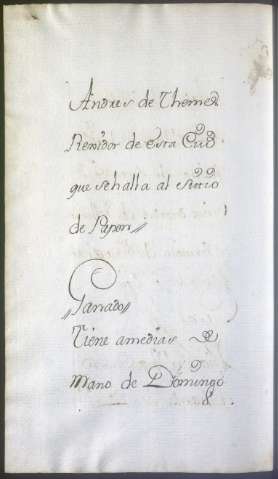 Andres de Theme
Residor de esta Ciud
que sehalla al sitio
de Papon
Ganado
Tiene amedias
Mano de Domingo